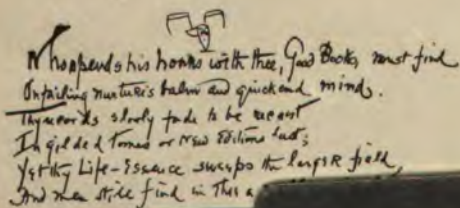 Who spends his hours with thee, Good Books, must find
Unfailing nurture's balm and quickend mind.
Thy words slowly fade to be recast
In gilded Tomes or New Editions last;
Yet thy Life-Essence sweeps the larger field,
And men still find in this a